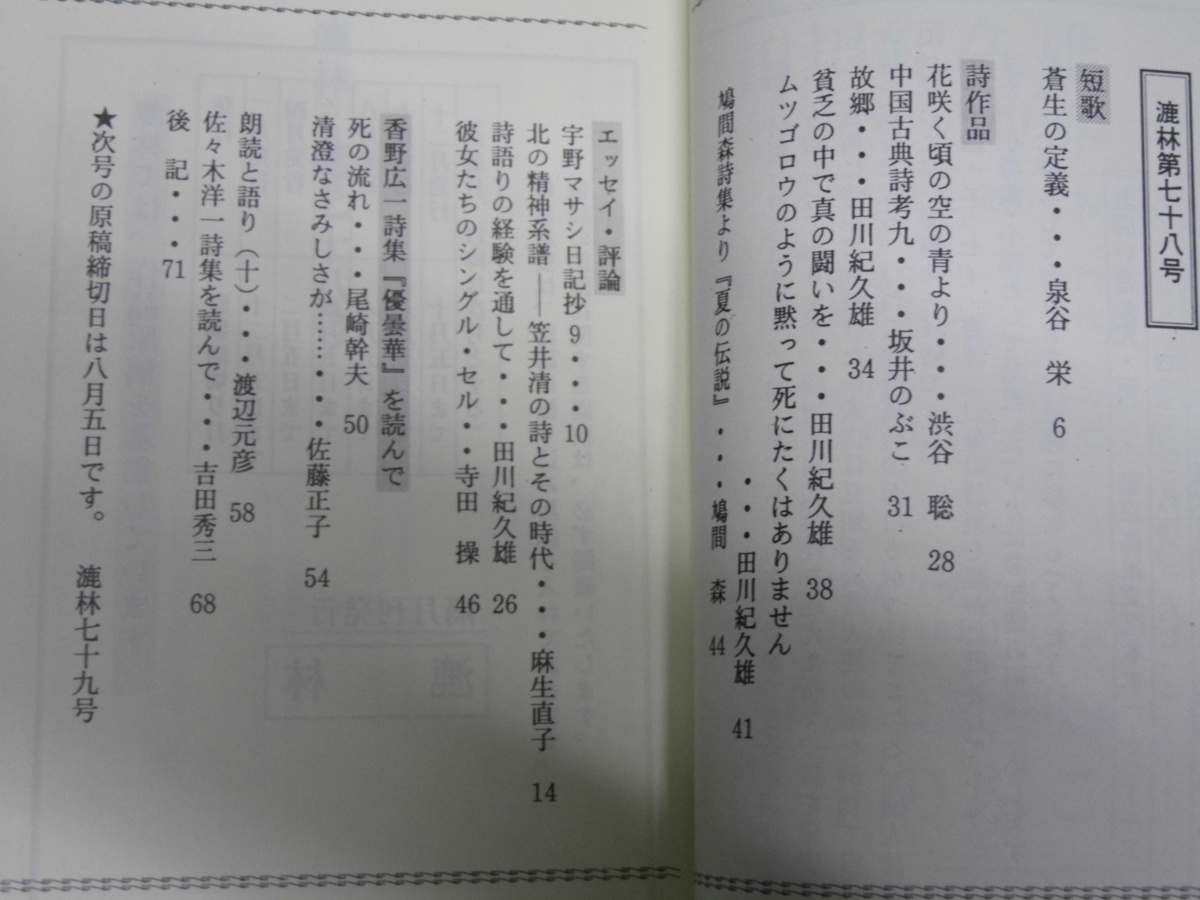 漉林第七十八号
短歌
蒼生の定義・・・泉谷　栄　6
詩作品
花咲く頃の空の青より・・・渋谷　聡　28
中国古典詩考九・・・坂井のぶこ　31
故郷・・・田川紀久雄　34
貧乏の中で真の闘いを・・・田川紀久雄　38
ムツゴロウのように黙って死にたくはありません
・・・田川紀久雄　41
鳩間森詩集より『夏の伝説』・・・鳩間　森　44
エッセイ・評論
宇野マサシ日記抄９・・・10
北の精神系譜――笠井清の詩とその時代・・・麻生直子　14
詩語りの経験を通して・・・田川紀久雄　26
彼女たちのシングル・セル・・寺田　操　46
香野広一詩集『優曇華』を読んで
死の流れ・・・尾崎幹夫　50
清澄なさみしさが……・・・佐藤正子　54
朗読と語り（十）・・・渡辺元彦　58
佐々木洋一詩集を読んで・・・吉田秀三　68
後　記・・・71
★次号の原稿締切日は八月五日です。　漉林七十九号